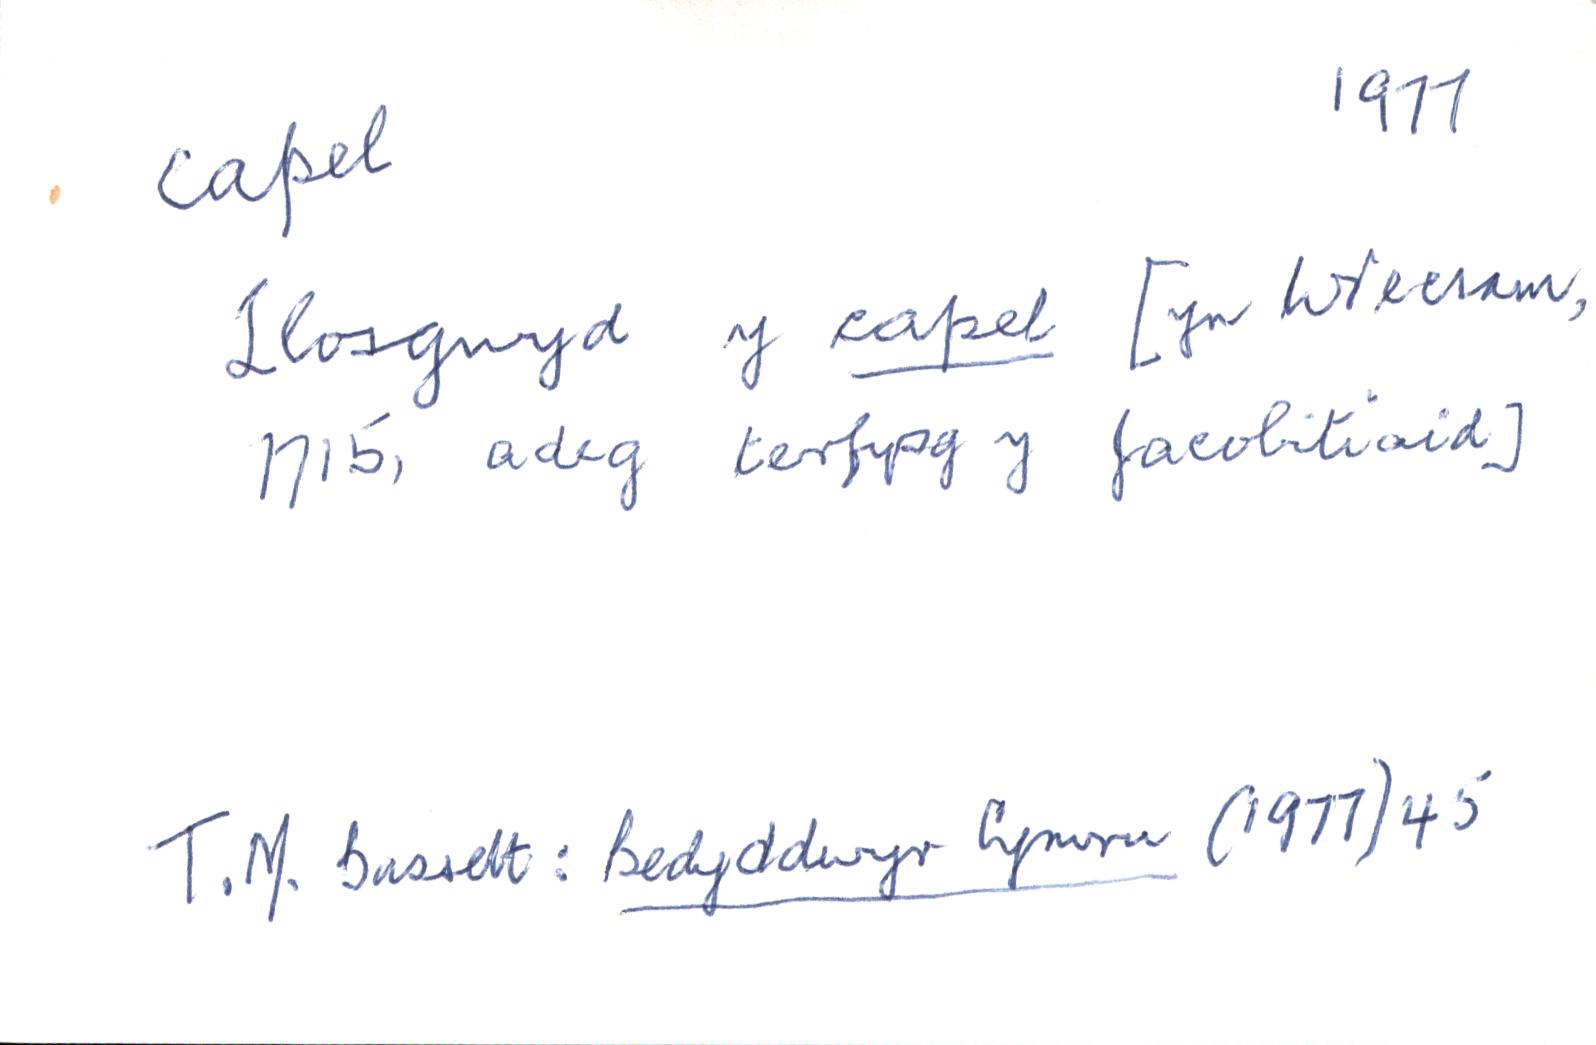 1977
capel
Llosgwyd y capel [yn Wrecsam,
1715, adeg terfysg y Jacobitiaid]
T.M. Bassett: Bedyddwyr Cymru (1977) 45